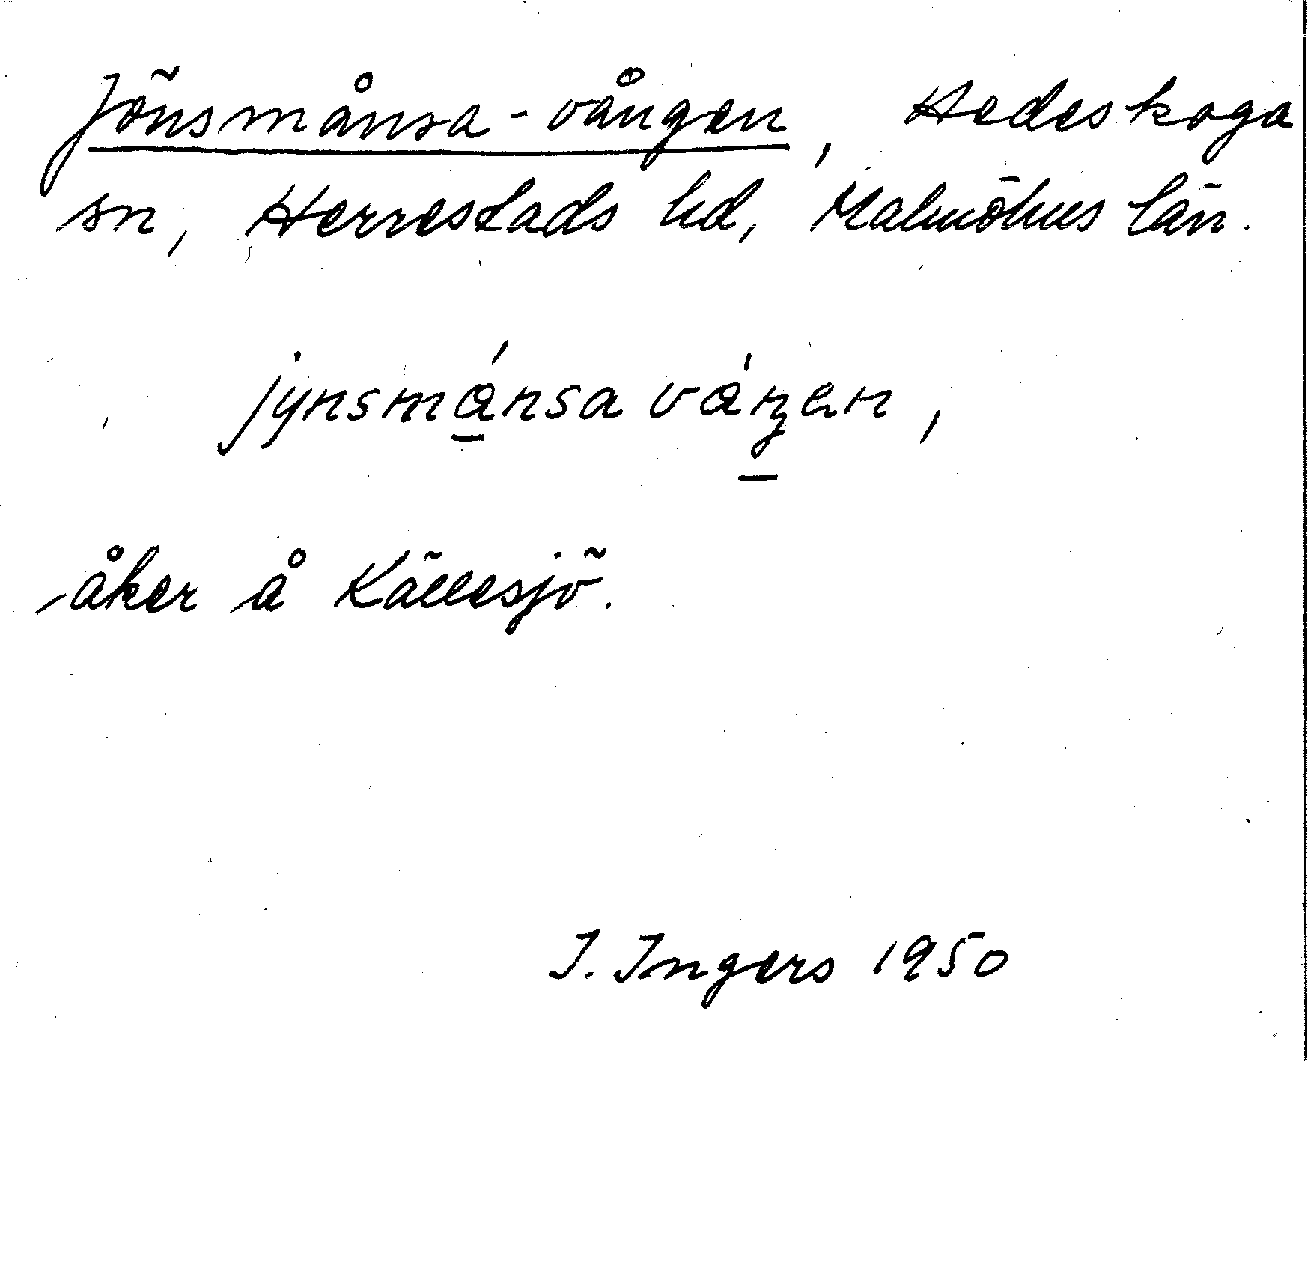 Jönsmånsa-vången, Hedeskoga
sn, Herrestads hd, Malmöhus län.
jynsmánsa váŋen,
åker å Källesjö.
I. Ingers 1950